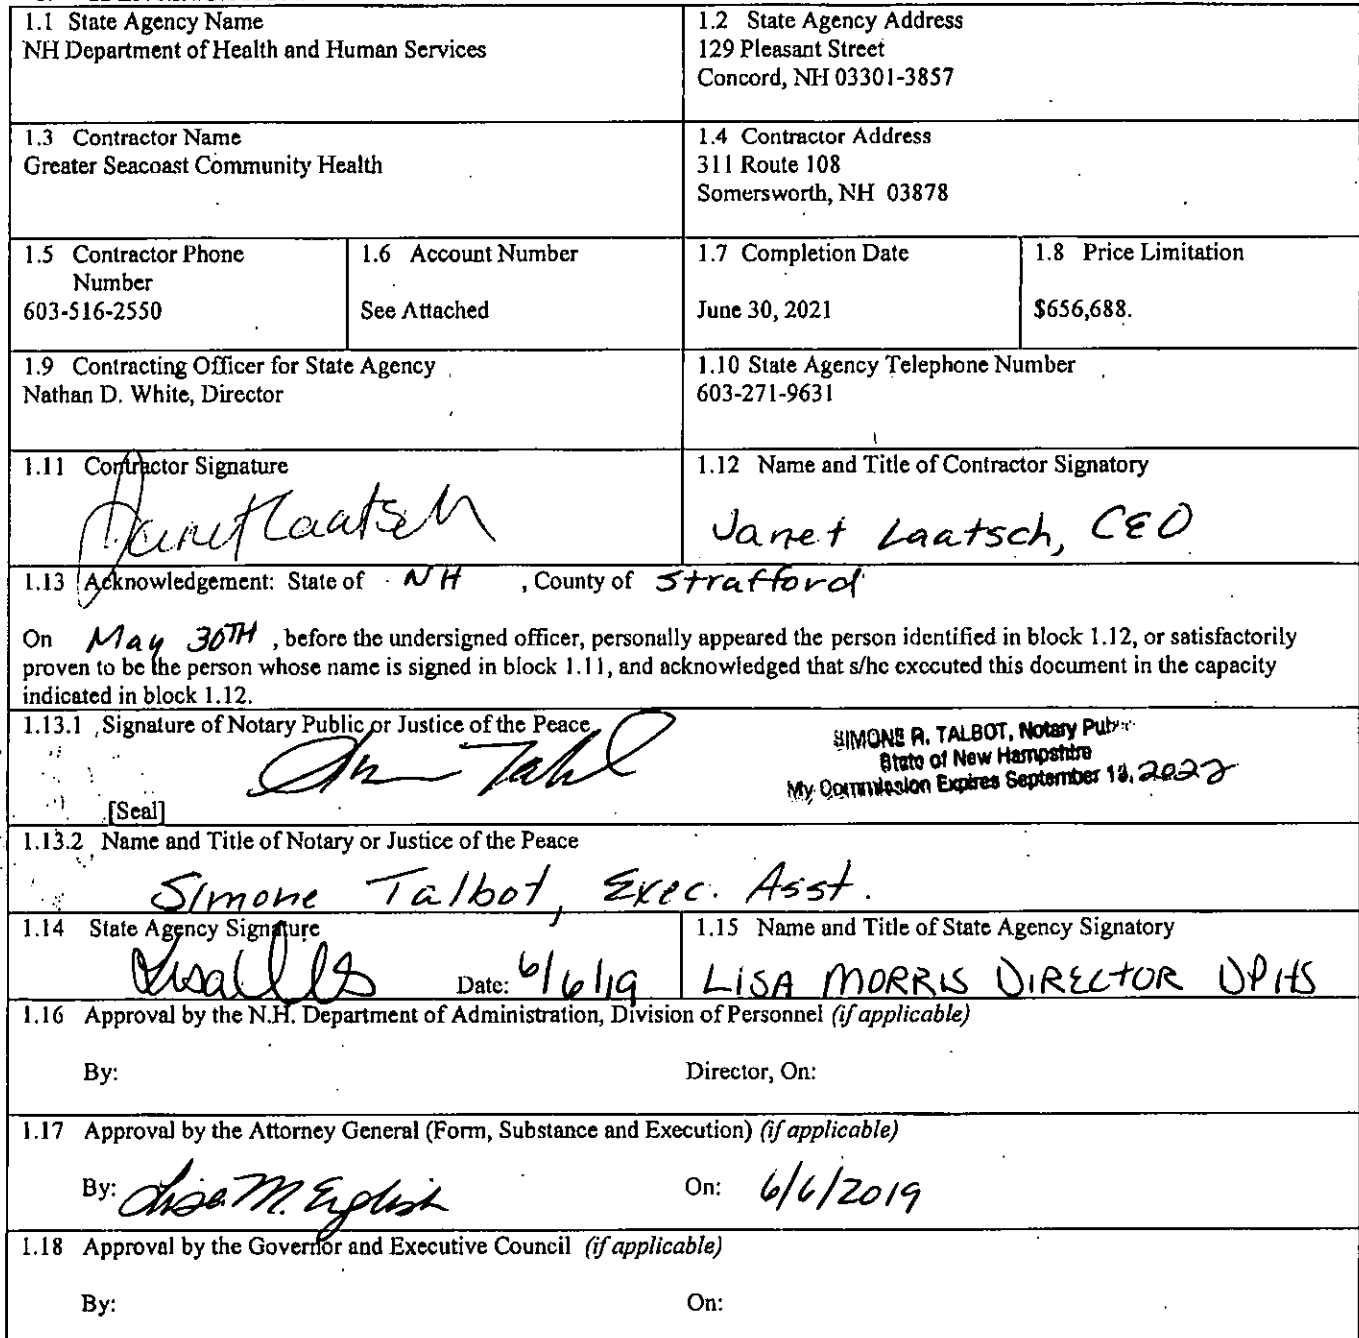 1.1 State Agency Name
NH Department of Health and Human Services
1.2 State Agency Address
129 Pleasant Street
Concord, NH 03301-3857
1.3 Contractor Name
Greater Seacoast Community Health
1.4 Contractor Address
311 Route 108
Somersworth, NH 03878
1.5 Contractor Phone
Number
603-516-2550
1.6 Account Number
See Attached
1.7 Completion Date
June 30, 2021
1.8 Price Limitation
$656,688.
1.9 Contracting Officer for State Agency
Nathan D. White, Director
1.10 State Agency Telephone Number
603-271-9631
1.11 Contractor Signature
Janet Laatsch
1.12 Name and Title of Contractor Signatory
Janet Laatsch, CEO
1.13 Acknowledgement: State of NH , County of Strafford
On May 30TH , before the undersigned officer, personally appeared the person identified in block 1.12, or satisfactorily
proven to be the person whose name is signed in block 1.11, and acknowledged that s/he executed this document in the capacity
indicated in block 1.12.
1.13.1 Signature of Notary Public or Justice of the Peace
SIMONE R. TALBOT, Notary Public
State of New Hampshire
My Commission Expires September 13, 2022
[Seal]
1.13.2 Name and Title of Notary or Justice of the Peace
Simone Talbot, Exec. Asst.
1.14 State Agency Signature
Date: 6/6/19
1.15 Name and Title of State Agency Signatory
LISA MORRIS DIRECTOR DPHS
1.16 Approval by the N.H. Department of Administration, Division of Personnel (if applicable)
By: Director, On:
1.17 Approval by the Attorney General (Form, Substance and Execution) (if applicable)
By: Lisa M. English On: 6/6/2019
1.18 Approval by the Governor and Executive Council (if applicable)
By: On: